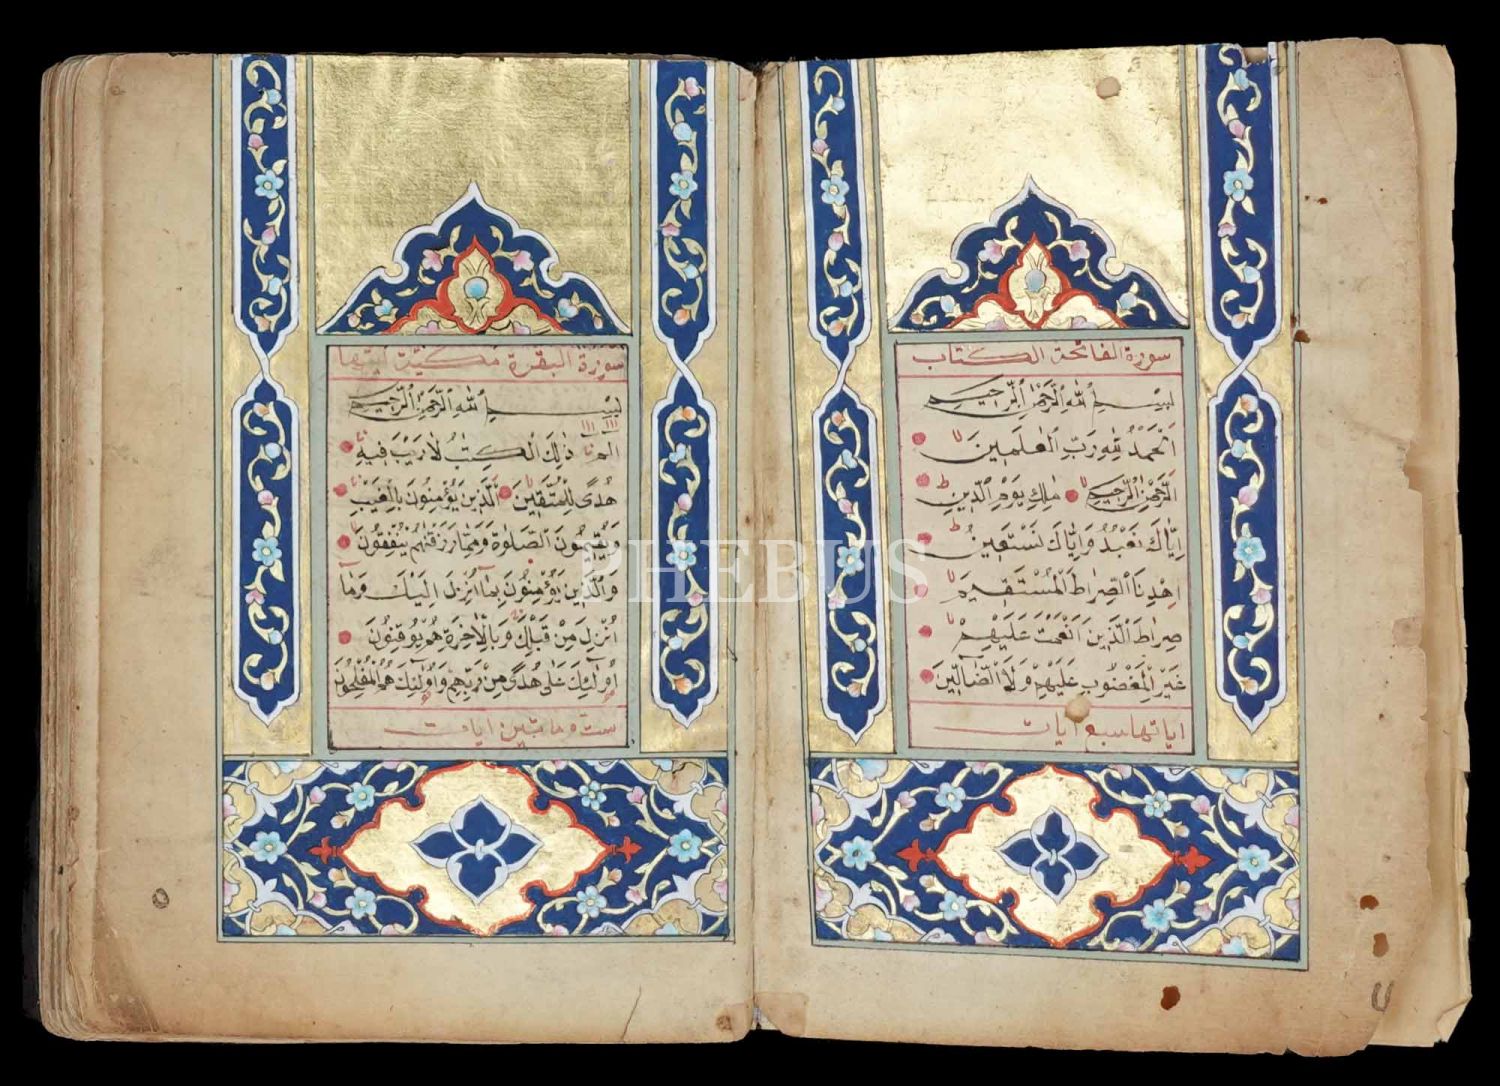 سورة الفاتحة الكتاب
بِسْمِ اللّٰهِ الرَّحْمٰنِ الرَّحِيمِ
اَلْحَمْدُ لِلّٰهِ رَبِّ الْعٰلَمِينَ
الرَّحْمٰنِ الرَّحِيمِ مٰلِكِ يَوْمِ الدِّينِ
اِيَّاكَ نَعْبُدُ وَاِيَّاكَ نَسْتَعِينُ
اِهْدِنَا الصِّرَاطَ الْمُسْتَقِيمَ
صِرَاطَ الَّذِينَ اَنْعَمْتَ عَلَيْهِمْ
غَيْرِ الْمَغْضُوبِ عَلَيْهِمْ وَلَا الضَّالِّينَ
اياتها سبع ايات
سورة البقرة
بِسْمِ اللّٰهِ الرَّحْمٰنِ الرَّحِيمِ
الم ذٰلِكَ الْكِتٰبُ لَا رَيْبَ فِيهِ
هُدًى لِلْمُتَّقِينَ الَّذِينَ يُؤْمِنُونَ بِالْغَيْبِ
وَيُقِيمُونَ الصَّلٰوةَ وَمِمَّا رَزَقْنٰهُمْ يُنْفِقُونَ
وَالَّذِينَ يُؤْمِنُونَ بِمَا اُنْزِلَ اِلَيْكَ وَمَا
اُنْزِلَ مِنْ قَبْلِكَ وَبِالْاٰخِرَةِ هُمْ يُوقِنُونَ
اُولٰئِكَ عَلٰى هُدًى مِنْ رَبِّهِمْ وَاُولٰئِكَ هُمُ الْمُفْلِحُونَ
ست و مايتين ايات
PHEBUS